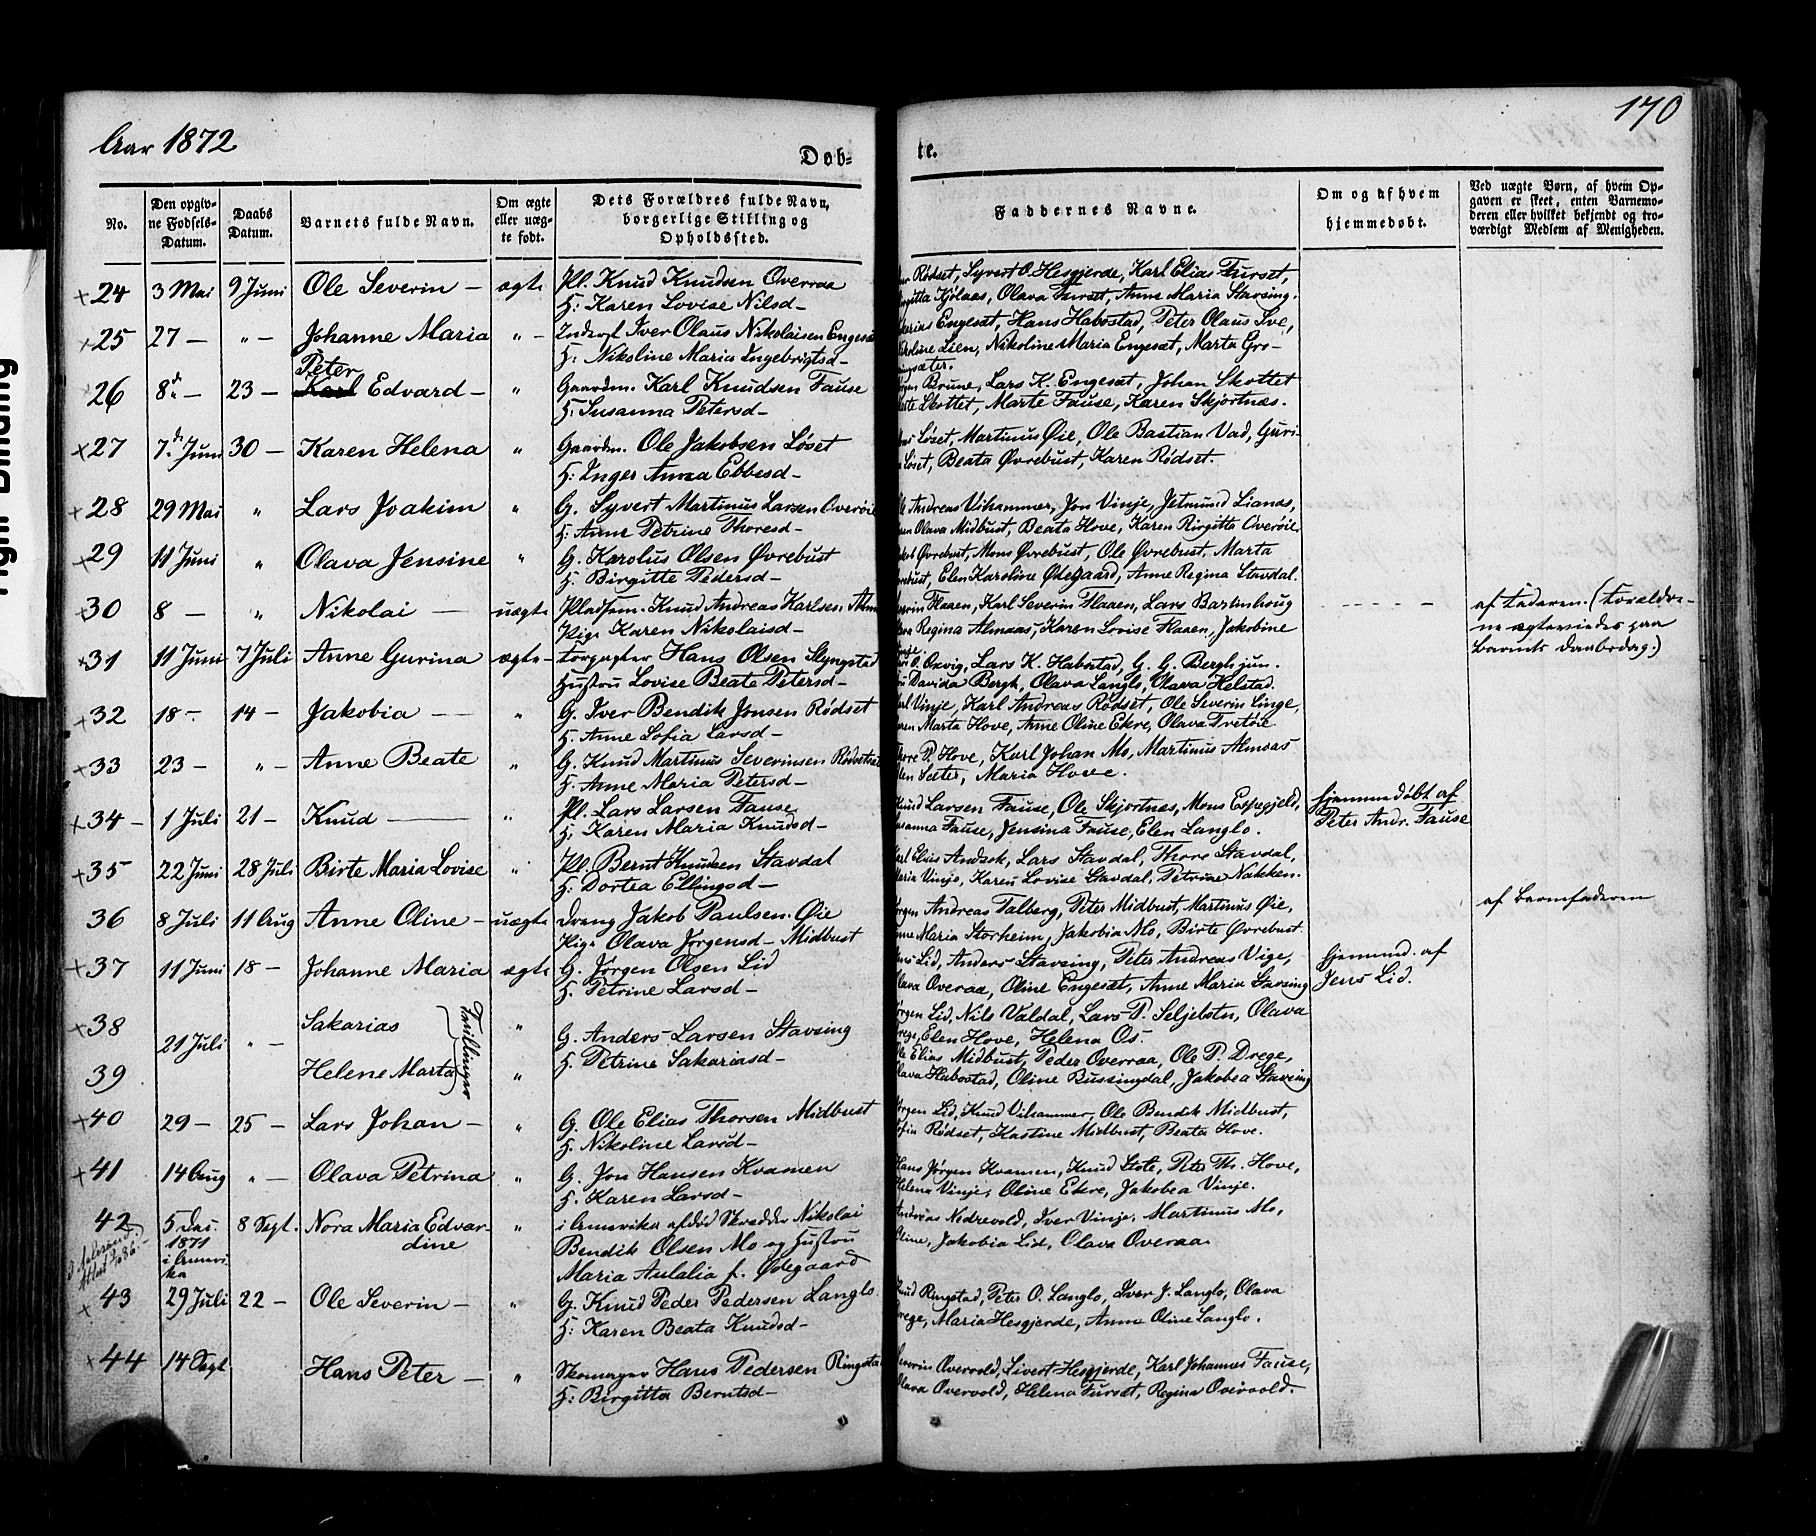 Aar 1872
170
Døb-
te.
No.
Den opgiv-
ne Fødsels-
Datum.
Daabs
Datum.
Barnets fulde Navn.
Om ægte
eller uæg-
te født.
Dets Forældres fulde Navn,
borgerlige Stilling og
Opholdssted.
Faddernes Navne.
Om og af hvem
hjemmedøbt.
Ved uægte Børn, af hvem Op-
gaven er skeet, enten Barnemo-
deren eller hvilket bekjendt og tro-
værdigt Medlem af Menigheden.
24 3 Mai 9 Juni Ole Severin – ægte Pl. Knud Knudsen Overraa
H: Karen Lovise Nilsd–
Rødset, Syvert O. Hesgjerde, Karl Elias Furset,
Kjølaas, Olava Furset, Anne Maria Stavsing.
25 27 – " – Johanne Maria " – Inderst Iver Olaus Nikolaisen Engesæt
H: Nikoline Maria Ingebrigtsd–
Engesæt, Hans Habostad, Peter Olaus Sve,
Lien, Nikoline Maria Engesæt, Marta Gro-
ningsæter.
Peter
26 8de – 23 – Karl Edvard – " Gaardm. Karl Knudsen Fause
H: Susanna Petersd–
Brune, Lars K. Engesæt, Johan Skottet
Skottet, Marte Fause, Karen Skjortnæs.
27 7de Juni 30 – Karen Helena " Gaardm. Ole Jakobsen Løset
H: Inger Anna Ebbesd–
Løset, Martinus Øie, Ole Bastian Vad, Guri-
Løset, Beata Øvrebust, Karen Rødset.
28 29 Mai " Lars Joakim " G. Syvert Martinus Larsen Overøie
H: Anne Petrine Thoresd–
Andreas Vihammer, Jon Vinje, Jetmund Lianes,
Olava Midbust, Beata Hove, Karen Birgitta Overøie
29 11 Juni " Olava Jensine " G. Karolus Olsen Øvrebust
H. Birgitte Pedersd–
Øvrebust, Mons Øvrebust, Ole Øvrebust, Marta
Elen Karoline Ødegaard, Anne Regina Stavdal.
30 8 – " Nikolai – uægte Pladsm. Knud Andreas Karlsen Alm
Pige Karen Nikolaisd–
Flaaen, Karl Severin Flaaen, Lars Barlinhoug
Regina Almaas, Karen Lovise Flaaen, Jakobine
af Faderen. (Forældre-
ne ægteviedes paa
Barnets Daabsdag.)
31 11 Juni 7 Juli Anne Gurina ægte – forpagter Hans Olsen Slyngstad
Hustru Lovise Beate Petersd–
Oxvig, Lars K. Habostad, G. G. Bergh jun.
Davida Bergh, Olava Langlo, Olava Helstad.
32 18 – 14 – Jakobia – " G. Iver Bendik Jonsen Rødset
H. Anne Sofia Larsd–
Vinje, Karl Andreas Rødset, Ole Severin Linge,
Marta Hove, Anne Oline Ekre, Olava Tretøie
33 23 – " – Anne Beate " G. Knud Martinus Severinsen Rødset
H. Anne Maria Petersd–
Thore P. Hove, Karl Johan Mo, Martinus Almaas
Sæter, Maria Hove.
34 – 1 Juli 21 – Knud – " Pl. Lars Larsen Fause
H; Karen Maria Knudsd–
Knud Larsen Fause, Ole Skjortnæs, Mons Espegjeld,
Susanna Fause, Jensina Fause, Elen Langlo.
Hjemmedøbt af
Peter Andr. Fause
35 22 Juni 28 Juli Birte Maria Lovise " Pl. Bernt Knudsen Stavdal
H; Dortea Ellingsd–
Karl Elias Lars Stavdal, Thore Stavdal,
Maria Vinje, Karen Lovise Stavdal, Petrine Nakken.
36 8 Juli 11 Aug Anne Oline – uægte Dreng Jakob Paulsen Øie
Pige Olava Jørgensd– Midbust
Jørgen Andreas Talberg, Peter Midbust, Martinus Øie,
Anne Maria Storheim, Jakobia Mo, Birte Øvrebust.
af Barnefaderen
37 11 Juni 18 – Johanne Maria ægte G. Jørgen Olsen Lid
H. Petrine Larsd–
Jens Lid, Anders Stavsing, Peter Andreas Vige,
Olava Overaa, Oline Engesæt, Anne Maria Stavsing
Hjemmed. af
Jens Lid.
38 21 Juli " – Sakarias Tvillinger " G. Anders Larsen Stavsing
H. Petrine Sakariasd–
Jørgen Lid, Nils Valdal, Lars P. Seljebotn, Olava
Drege, Elen Hove, Helena Os.
39 Helene Marta "
Ole Elias Midbust, Peder Overraa, Ole P. Drege,
Olava Habostad, Oline Bussingdal, Jakobea Stavsing
40 29 – 25 – Lars Johan – " G. Ole Elias Thorsen Midbust
H. Nikoline Larsd–
Jørgen Lid, Knud Vihammer, Ole Bendik Midbust,
Sofia Rødset, Kastine Midbust, Beata Hove.
41 14 Aug " – Olava Petrina " G. Jon Hansen Kvamen
H. Karen Larsd–
Hans Jørgen Kvamen, Knud Stole, Peter Th. Hove,
Helena Vinje, Oline Ekre, Jakobea Vinje.
42 5 Dec. 1871 i Amerika 8 Sept. Nora Maria Edvar-
dine " i Amerika afdød Skrædder Nikolai
Bendik Olsen Mo og Hustru
Maria Aulalia f. Ødegaard
Andreas Nedrevold, Iver Vinje, Martinus Mo,
Oline, Jakobia Lid, Olava Overaa.
43 29 Juli 22 – Ole Severin – " G. Knud Peder Pedersen Langlo
H: Karen Beata Knudsd–
Knud Ringstad, Peter O. Langlo, Iver J. Langlo, Olava
Drege, Maria Hesgjerde, Anne Oline Langlo.
44 14 Sept Hans Peter – " Skomager Hans Pedersen Ringstad
H: Birgitta Berntsd–
Severin Overvold, Sivert Hesgjerde, Karl Johannes Fause,
Olava Overvold, Helena Furset, Regina Overvold.